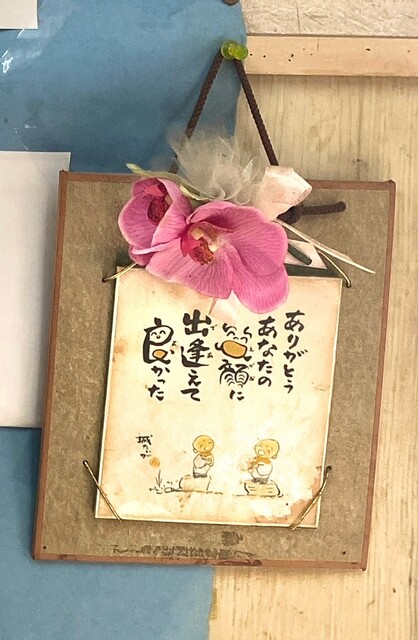 ありがとう
あなたの
笑顔に
出逢えて
良かった